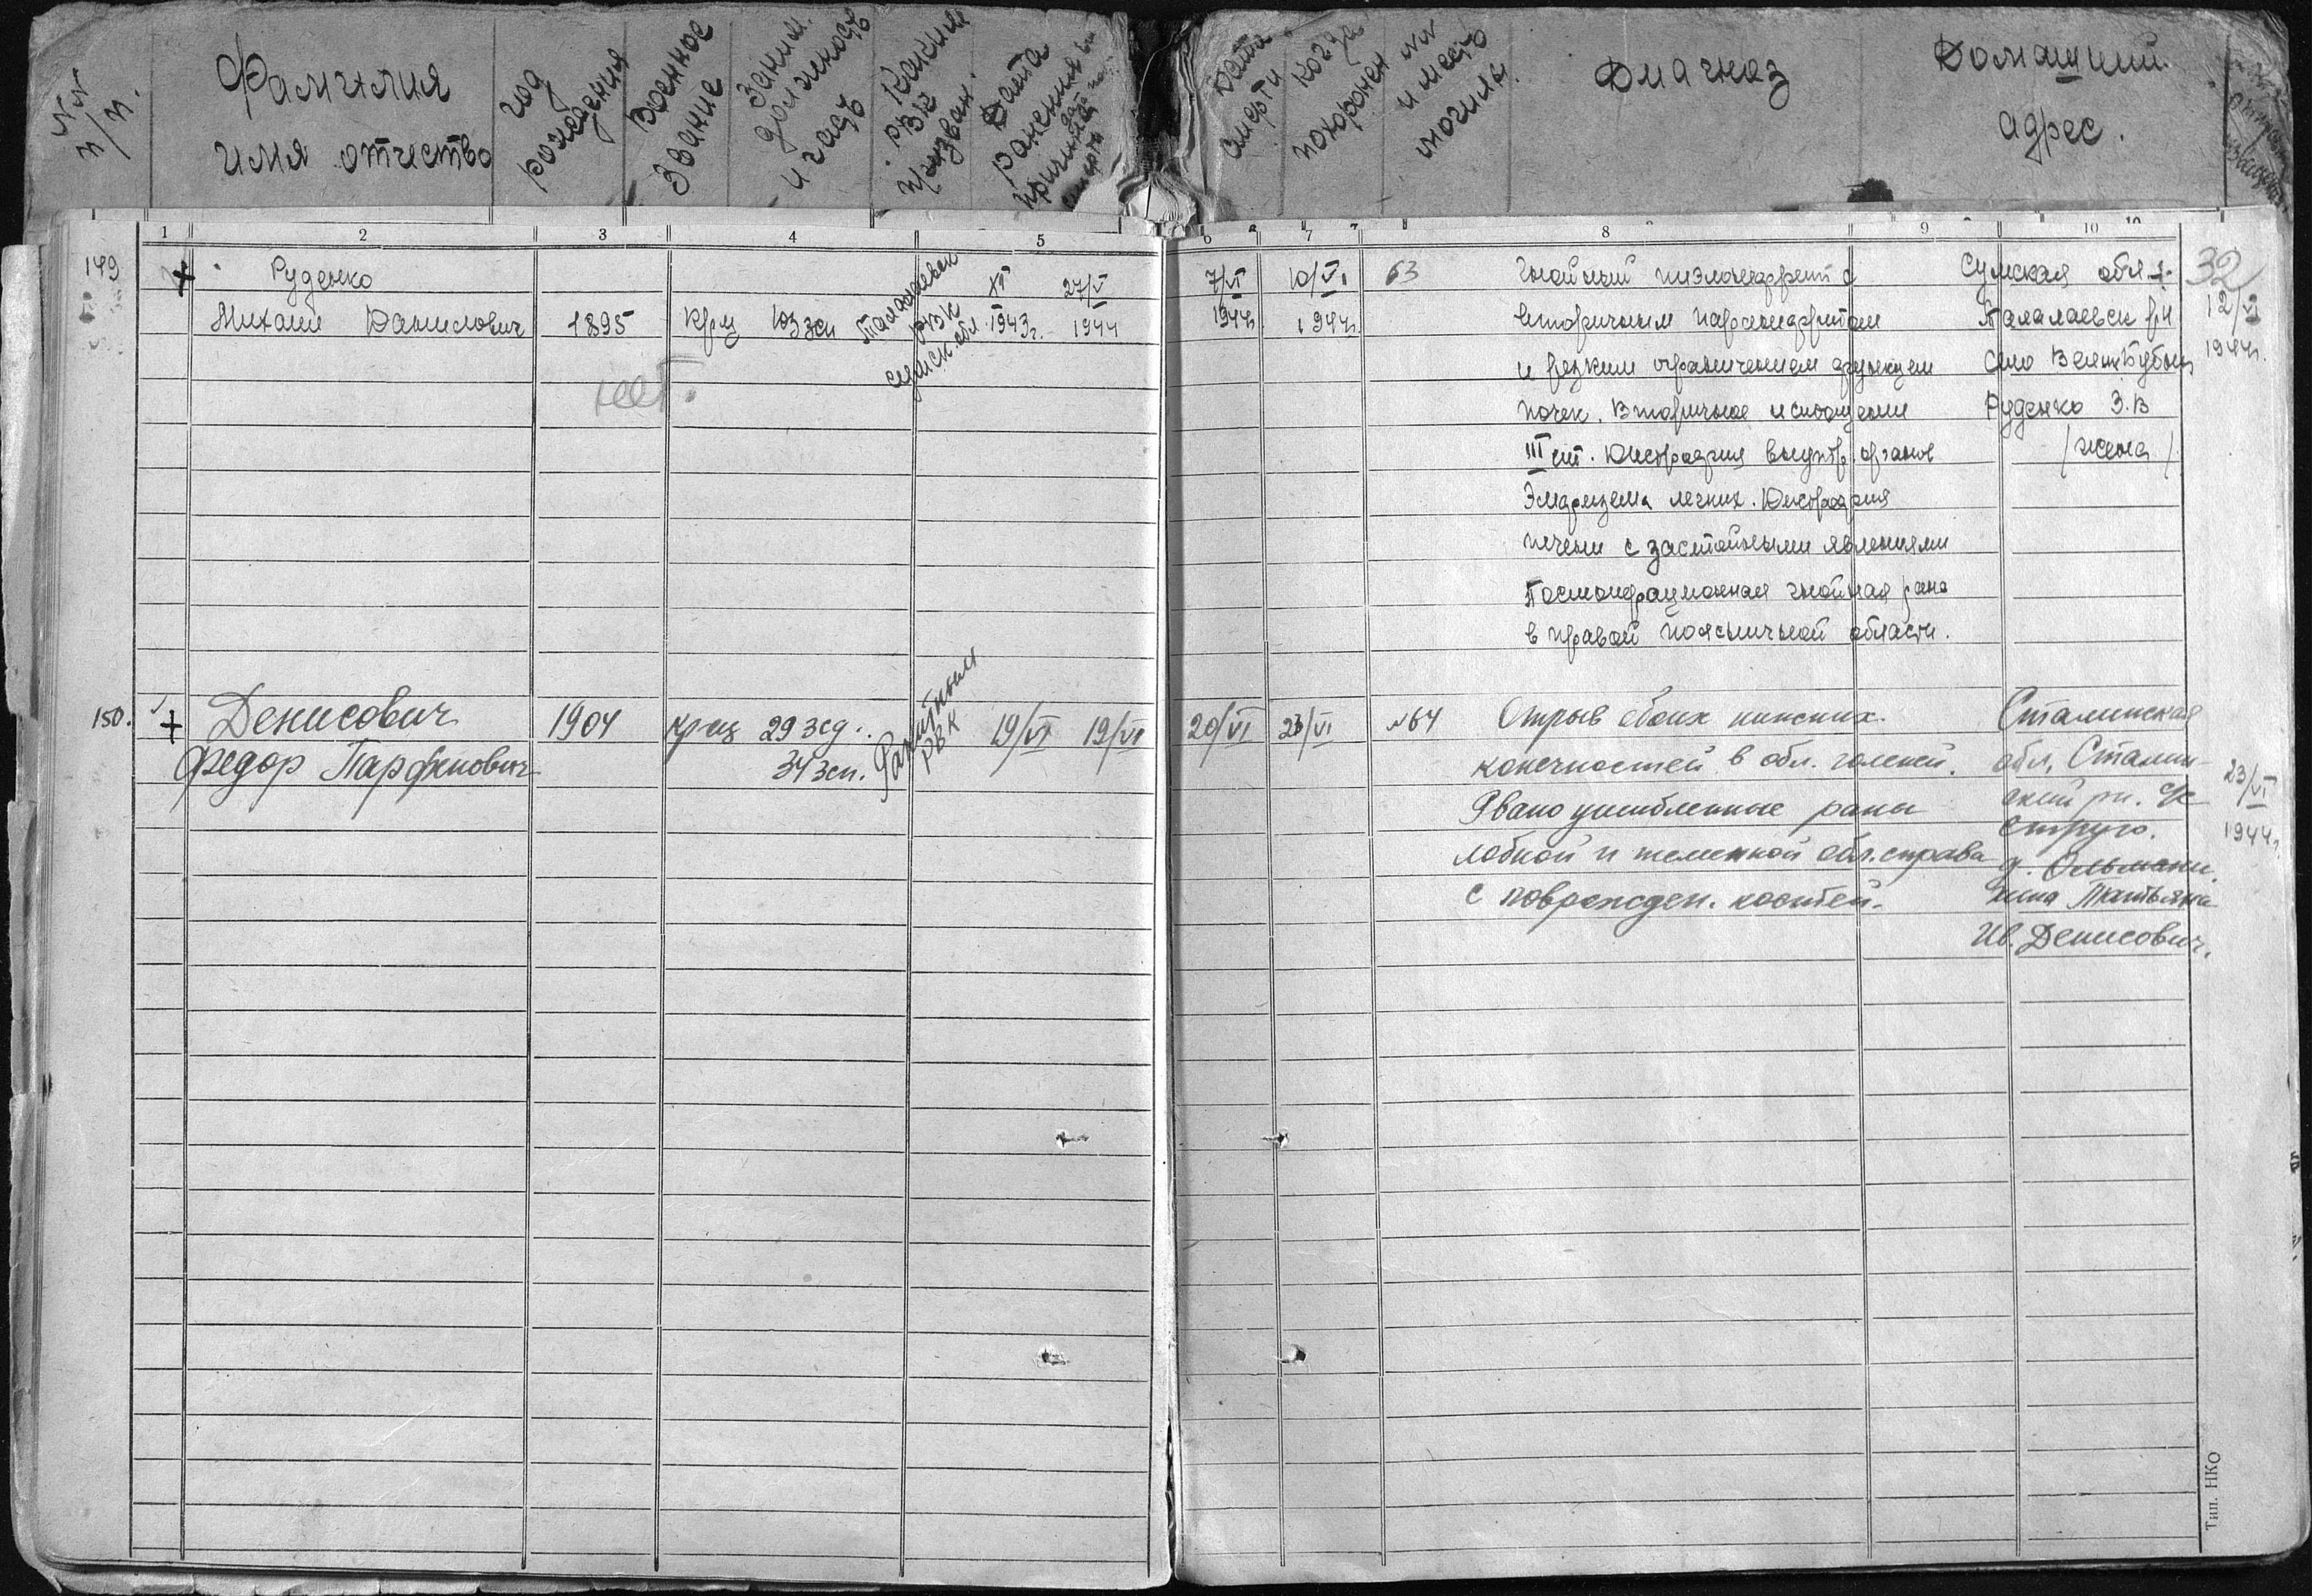 NN п/п.
Фамилия имя отчество
год рождения
Военное звание
Заним. должность и часть
Каким РВК призван.
Дата ранения
Дата смерти
Когда похоронен
NN и место могилы.
Диагноз
Домашний адрес.
1 2 3 4 5 6 7 8 9 10
32
149 Руденко
Михаил Данилович 1895 Крц
Талалаевск РВК Сумск. обл.
XI 1943г. 27/V 1944
7/VI 1944г. 10/VI 1944г. 63
Гнойный пиэлонефрит с
вторичным паранефритом
и резким ограничением функции
почек. Вторичное истощение
III ст. Дистрофия внутр. органов
Эмфизема легких. Дистрофия
печени с застойными явлениями
Послоперационная гнойная рана
в правой поясничной области.
Сумская обл.
Талалаевск р-н
Село
Руденко З.В
/жена/
12/VI
1944г.
нет.
150. Денисович 1904 кр-ц 29 зсд.
Федор Парфенович 34 зсп.
РВК
19/VI 19/VI
20/VI 23/VI №64
Отрыв обоих нижних
конечностей в обл. голеней.
Рвано ушибленные раны
лобной и теменной обл. справа
с поврежден. костей.
Сталинская
обл, Сталин-
ский рн.
д. Ольманы.
жена Татьяна
Ив. Денисович.
23/VI
1944г.
Тип. НКО